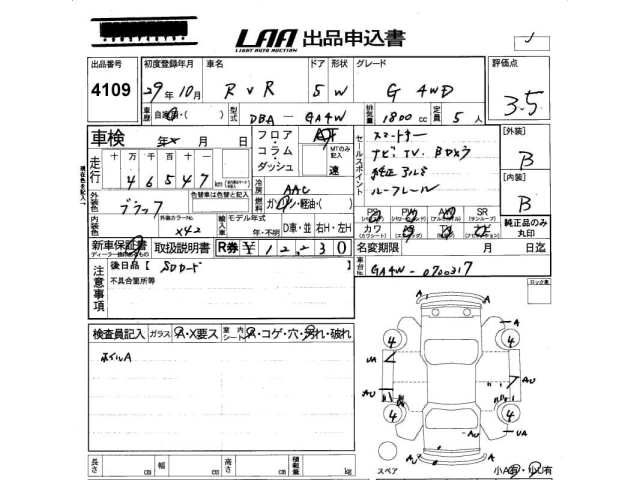 LAA 出品申込書
LIGHT AUTO AUCTION
出品番号 初度登録年月 車名 ドア 形状 グレード 評価点
4109 29年10月 RVR 5 W G 4WD 3.5
車歴 自家用・( ) 型式 DBA-GA4W 排気量 1800cc 定員 5人
車検 年 月 日
フロア・コラム・ダッシュ AT
MTのみ記入 速
セールスポイント
スマートキー
ナビ TV Bカメラ
純正アルミ
ルーフレール
[外装]
B
[内装]
B
走行 十万 千百十一
46547 km
冷房 AAC
燃料 ガソリン・軽油・( )
現在色を記入
外装色 ブラック
色替車は色替と記入
内装色 外装カラーNo. X42
輸入車 モデル年式 年・不明 D車・並 右H・左H
PS PW AW SR
カワ TV ナビ
純正品のみ丸印
新車保証書 取扱説明書 R券 ¥12,230
ディーラー捺印あるもの
名変期限 月 日迄
車台No. GA4W-0700317
注意事項
後日品【 SDカード 】
不具合箇所等
ロック車
検査員記入 ガラス A・X要ス 室内シート A・コゲ・穴・汚れ・破れ
ホイルA
A
A
4 4
UA
AU
AU
4 4
AU
UA
スペア 小A有・小U有
長さ cm 幅 cm 高さ cm 積載量 kg